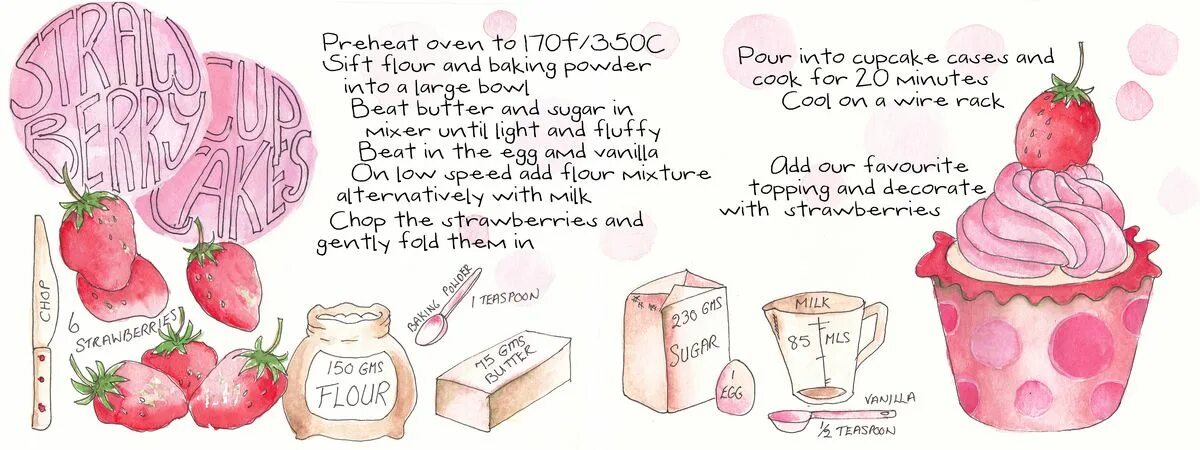 STRAW
BERRY
CUP
CAKES
Preheat oven to 170f/350C
Sift flour and baking powder
into a large bowl
Beat butter and sugar in
mixer until light and fluffy
Beat in the egg amd vanilla
On low speed add flour mixture
alternatively with milk
Chop the strawberries and
gently fold them in
Pour into cupcake cases and
cook for 20 minutes
Cool on a wire rack
Add our favourite
topping and decorate
with strawberries
CHOP
6
STRAWBERRIES
150 GMS
FLOUR
BAKING POWDER
1 TEASPOON
75 GMS
BUTTER
230 GMS
SUGAR
1
EGG
MILK
85 MLS
VANILLA
1/2 TEASPOON